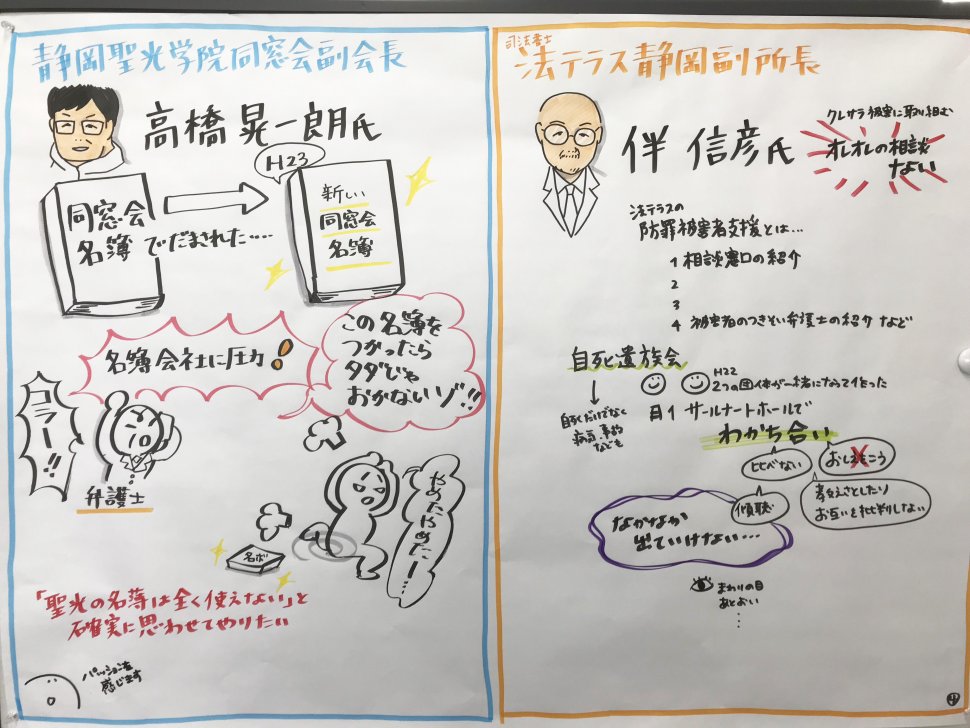 静岡聖光学院同窓会副会長
高橋晃一朗氏
H23
同窓会
名簿でだまされた....
新しい
同窓会
名簿
名簿会社に圧力!
この名簿を
つかったら
タダじゃ
おかないゾ!!
コラー!!
弁護士
やめたやめたー!
名ボ
「聖光の名簿は全く使えない」と
確実に思わせてやりたい
パッションを
感じます
司法書士
法テラス静岡副所長
伴 信彦氏
クレサラ被害に取り組む
オレオレの相談
ない
法テラスの
防罪被害者支援とは...
1 相談窓口の紹介
2
3
4 被害者のつきそい弁護士の紹介 など
自死遺族会
H22
2つの団体が一緒になって1をった
自死だけでなく
病気、事故
なども
月1 サールナートホールで
わかち合い
比べない
おしえこう
傾聴
教えさとしたり
お互いを批判しない
なかなか
出ていけない...
まわりの目
あとおい